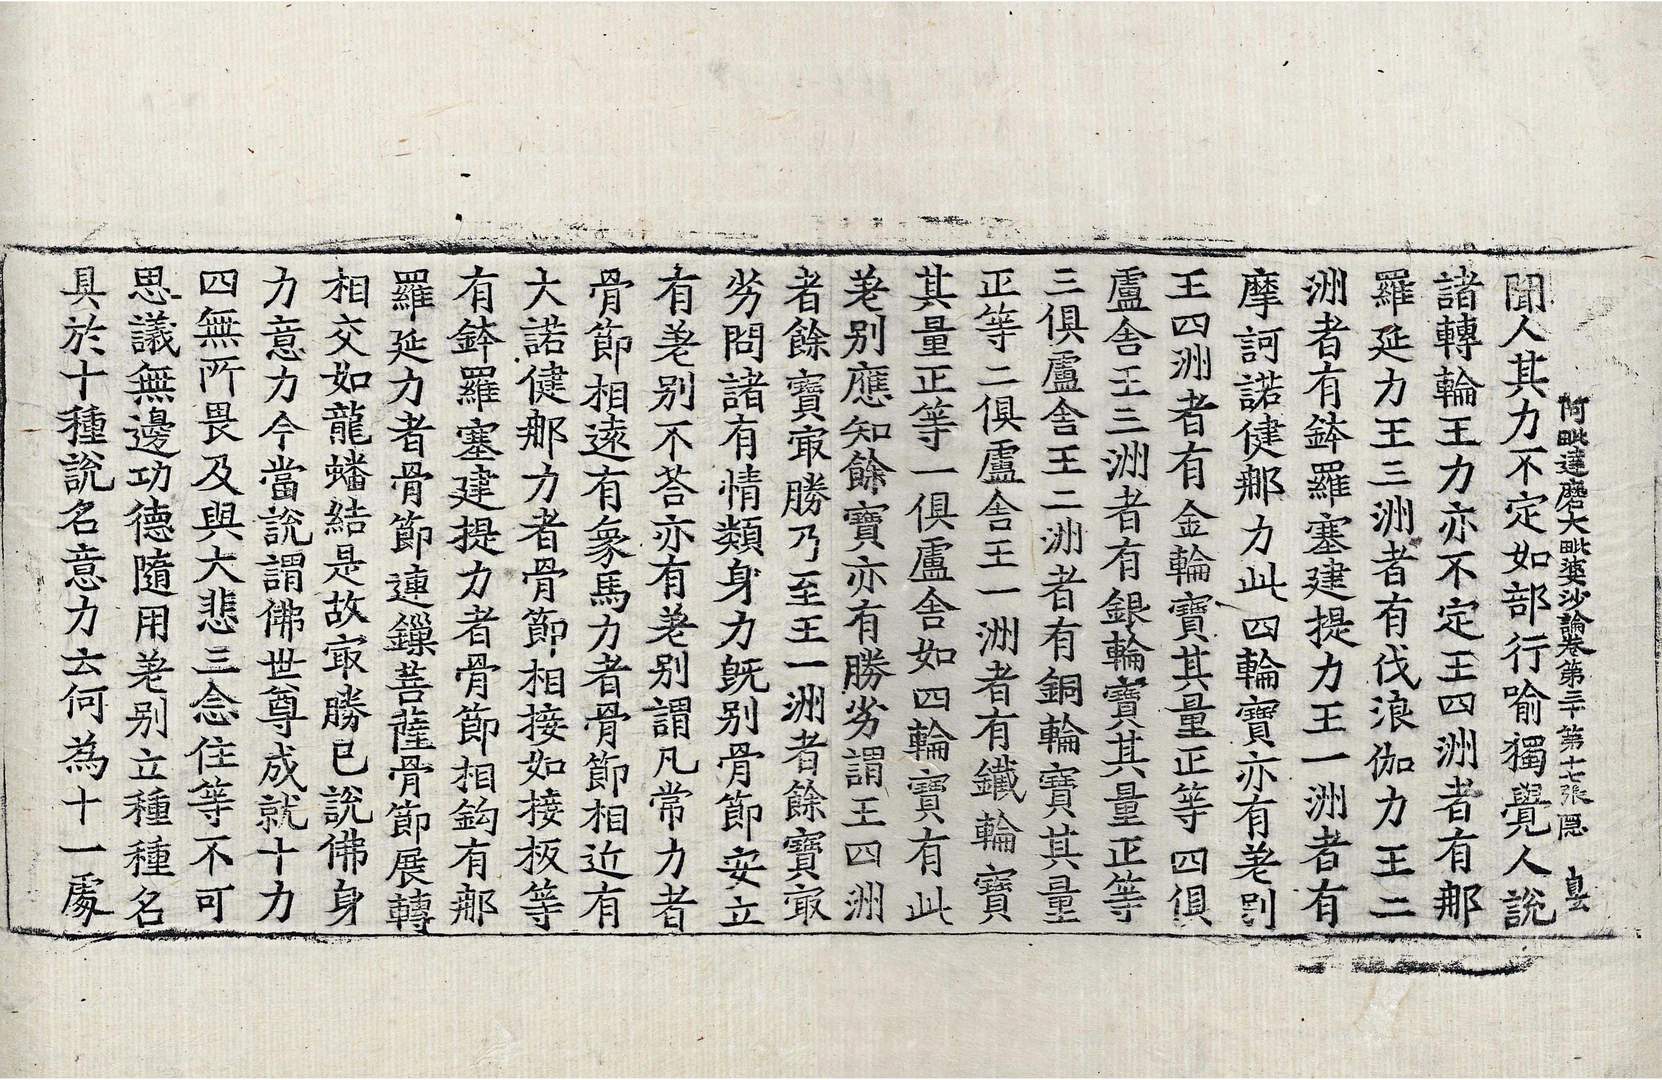 阿毗達磨大毗婆沙論卷第三十 第十七張 隠
聞人其力不定如部行喻獨覺人說
諸轉輪王力亦不定王四洲者有那
羅延力王三洲者有伐浪伽力王二
洲者有鉢羅塞建提力王一洲者有
摩訶諾健那力此四輪寶亦有差別
王四洲者有金輪寶其量正等四俱
盧舍王三洲者有銀輪寶其量正等
三俱盧舍王二洲者有銅輪寶其量
正等二俱盧舍王一洲者有鐵輪寶
其量正等一俱盧舍如四輪寶有此
差別應知餘寶亦有勝劣謂王四洲
者餘寶㝡勝乃至王一洲者餘寶㝡
劣問諸有情類身力旣別骨節安立
有差別不荅亦有差別謂凡常力者
骨節相遠有象馬力者骨節相近有
大諾健那力者骨節相接如接板等
有鉢羅塞建提力者骨節相鈎有那
羅延力者骨節連鏁菩薩骨節展轉
相交如龍蟠結是故㝡勝已說佛身
力意力今當說謂佛世尊成就十力
四無所畏及與大悲三念住等不可
思議無邊功德隨用差別立種種名
具於十種說名意力云何為十一處